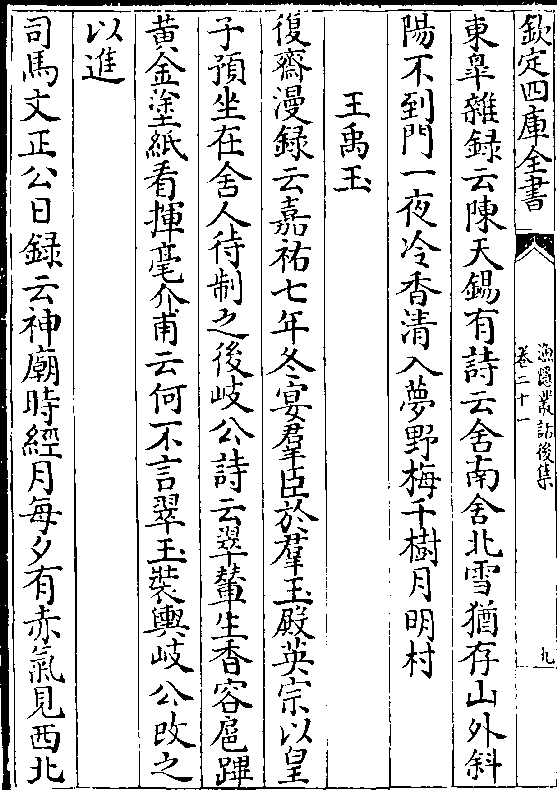 欽定四庫全書
漁隱叢話後集
卷二十一
九
東臯雜録云陳天錫有詩云舍南舍北雪猶存山外斜
陽不到門一夜冷香清入夢野梅千樹月明村
王禹玉
復齋漫録云嘉祐七年冬宴羣臣於羣玉殿英宗以皇
子預坐在舍人待制之後岐公詩云翠輦生香容扈蹕
黄金塗紙看揮毫介甫云何不言翠玉裝輿岐公改之
以進
司馬文正公日録云神廟時經月每夕有赤氣見西北